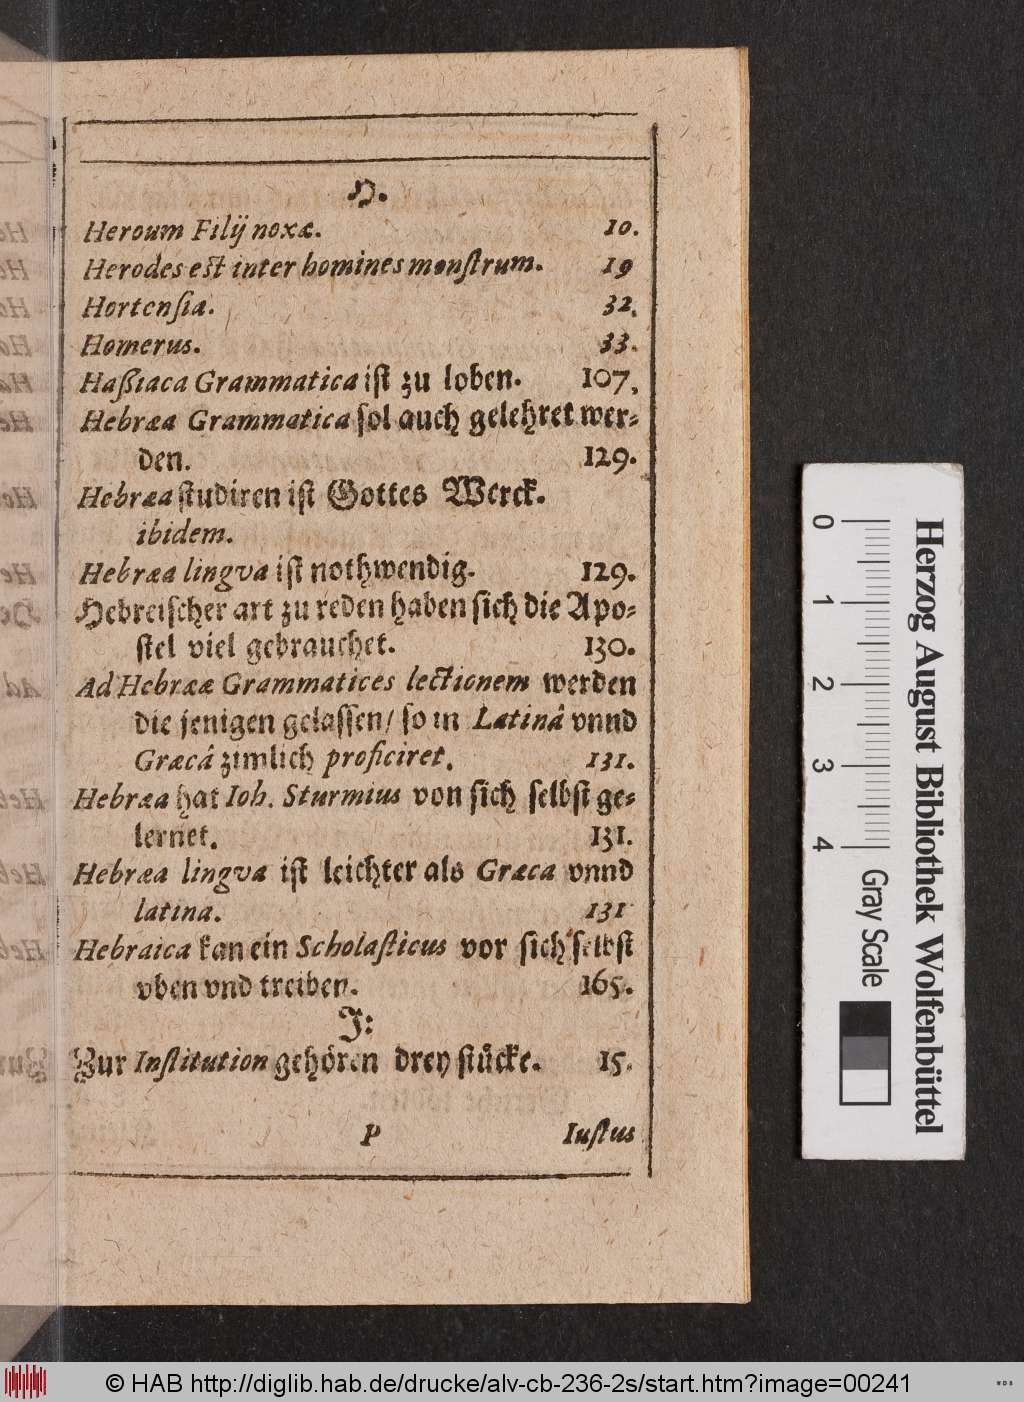 H.
Heroum Filij noxæ. 10.
Herodes est inter homines monſtrum. 19
Hortenſia. 32.
Homerus. 33.
Haßiaca Grammatica iſt zu loben. 107.
Hebræa Grammatica ſol auch gelehret wer-
den. 129.
Hebræa ſtudiren iſt Gottes Werck.
ibidem.
Hebræa lingva iſt nothwendig. 129.
Hebreiſcher art zu reden haben ſich die Apo-
ſtel viel gebrauchet. 130.
Ad Hebrææ Grammatices lectionem werden
die jenigen gelaſſen/ ſo in Latinâ vnnd
Græcâ zimlich proficiret. 131.
Hebræa hat Ioh. Sturmius von ſich ſelbſt ge-
lernet. 131.
Hebræa lingva iſt leichter als Græca vnnd
latina. 131
Hebraica kan ein Scholaſticus vor ſich ſelbſt
vben vnd treiben. 165.
J:
Zur Inſtitution gehören drey ſtücke. 15.
P Iuſtus
0 1 2 3 4 Gray Scale
Herzog August Bibliothek Wolfenbüttel
© HAB http://diglib.hab.de/drucke/alv-cb-236-2s/start.htm?image=00241